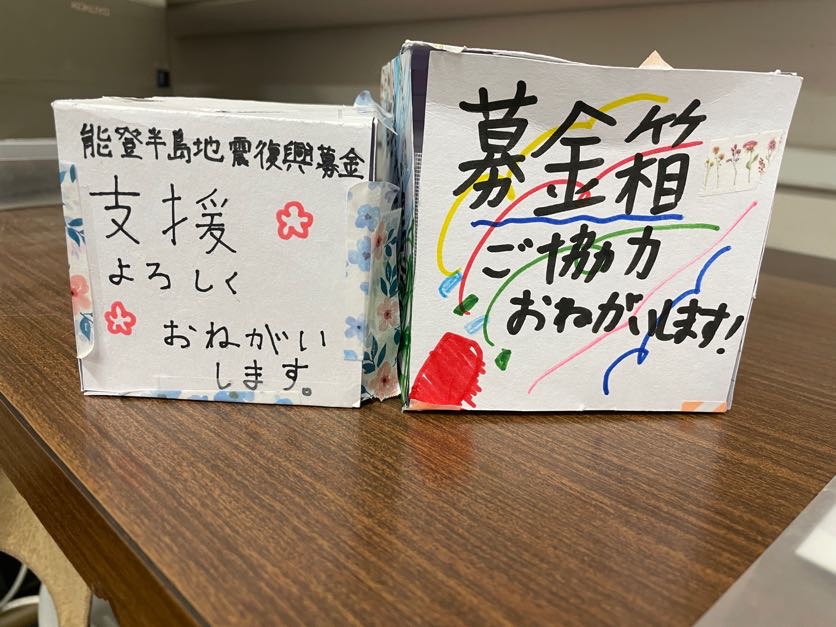 能登半島地震復興募金
支援
よろしく
おねがい
します。
募金箱
ご協力
おねがいします!
KOKUYO